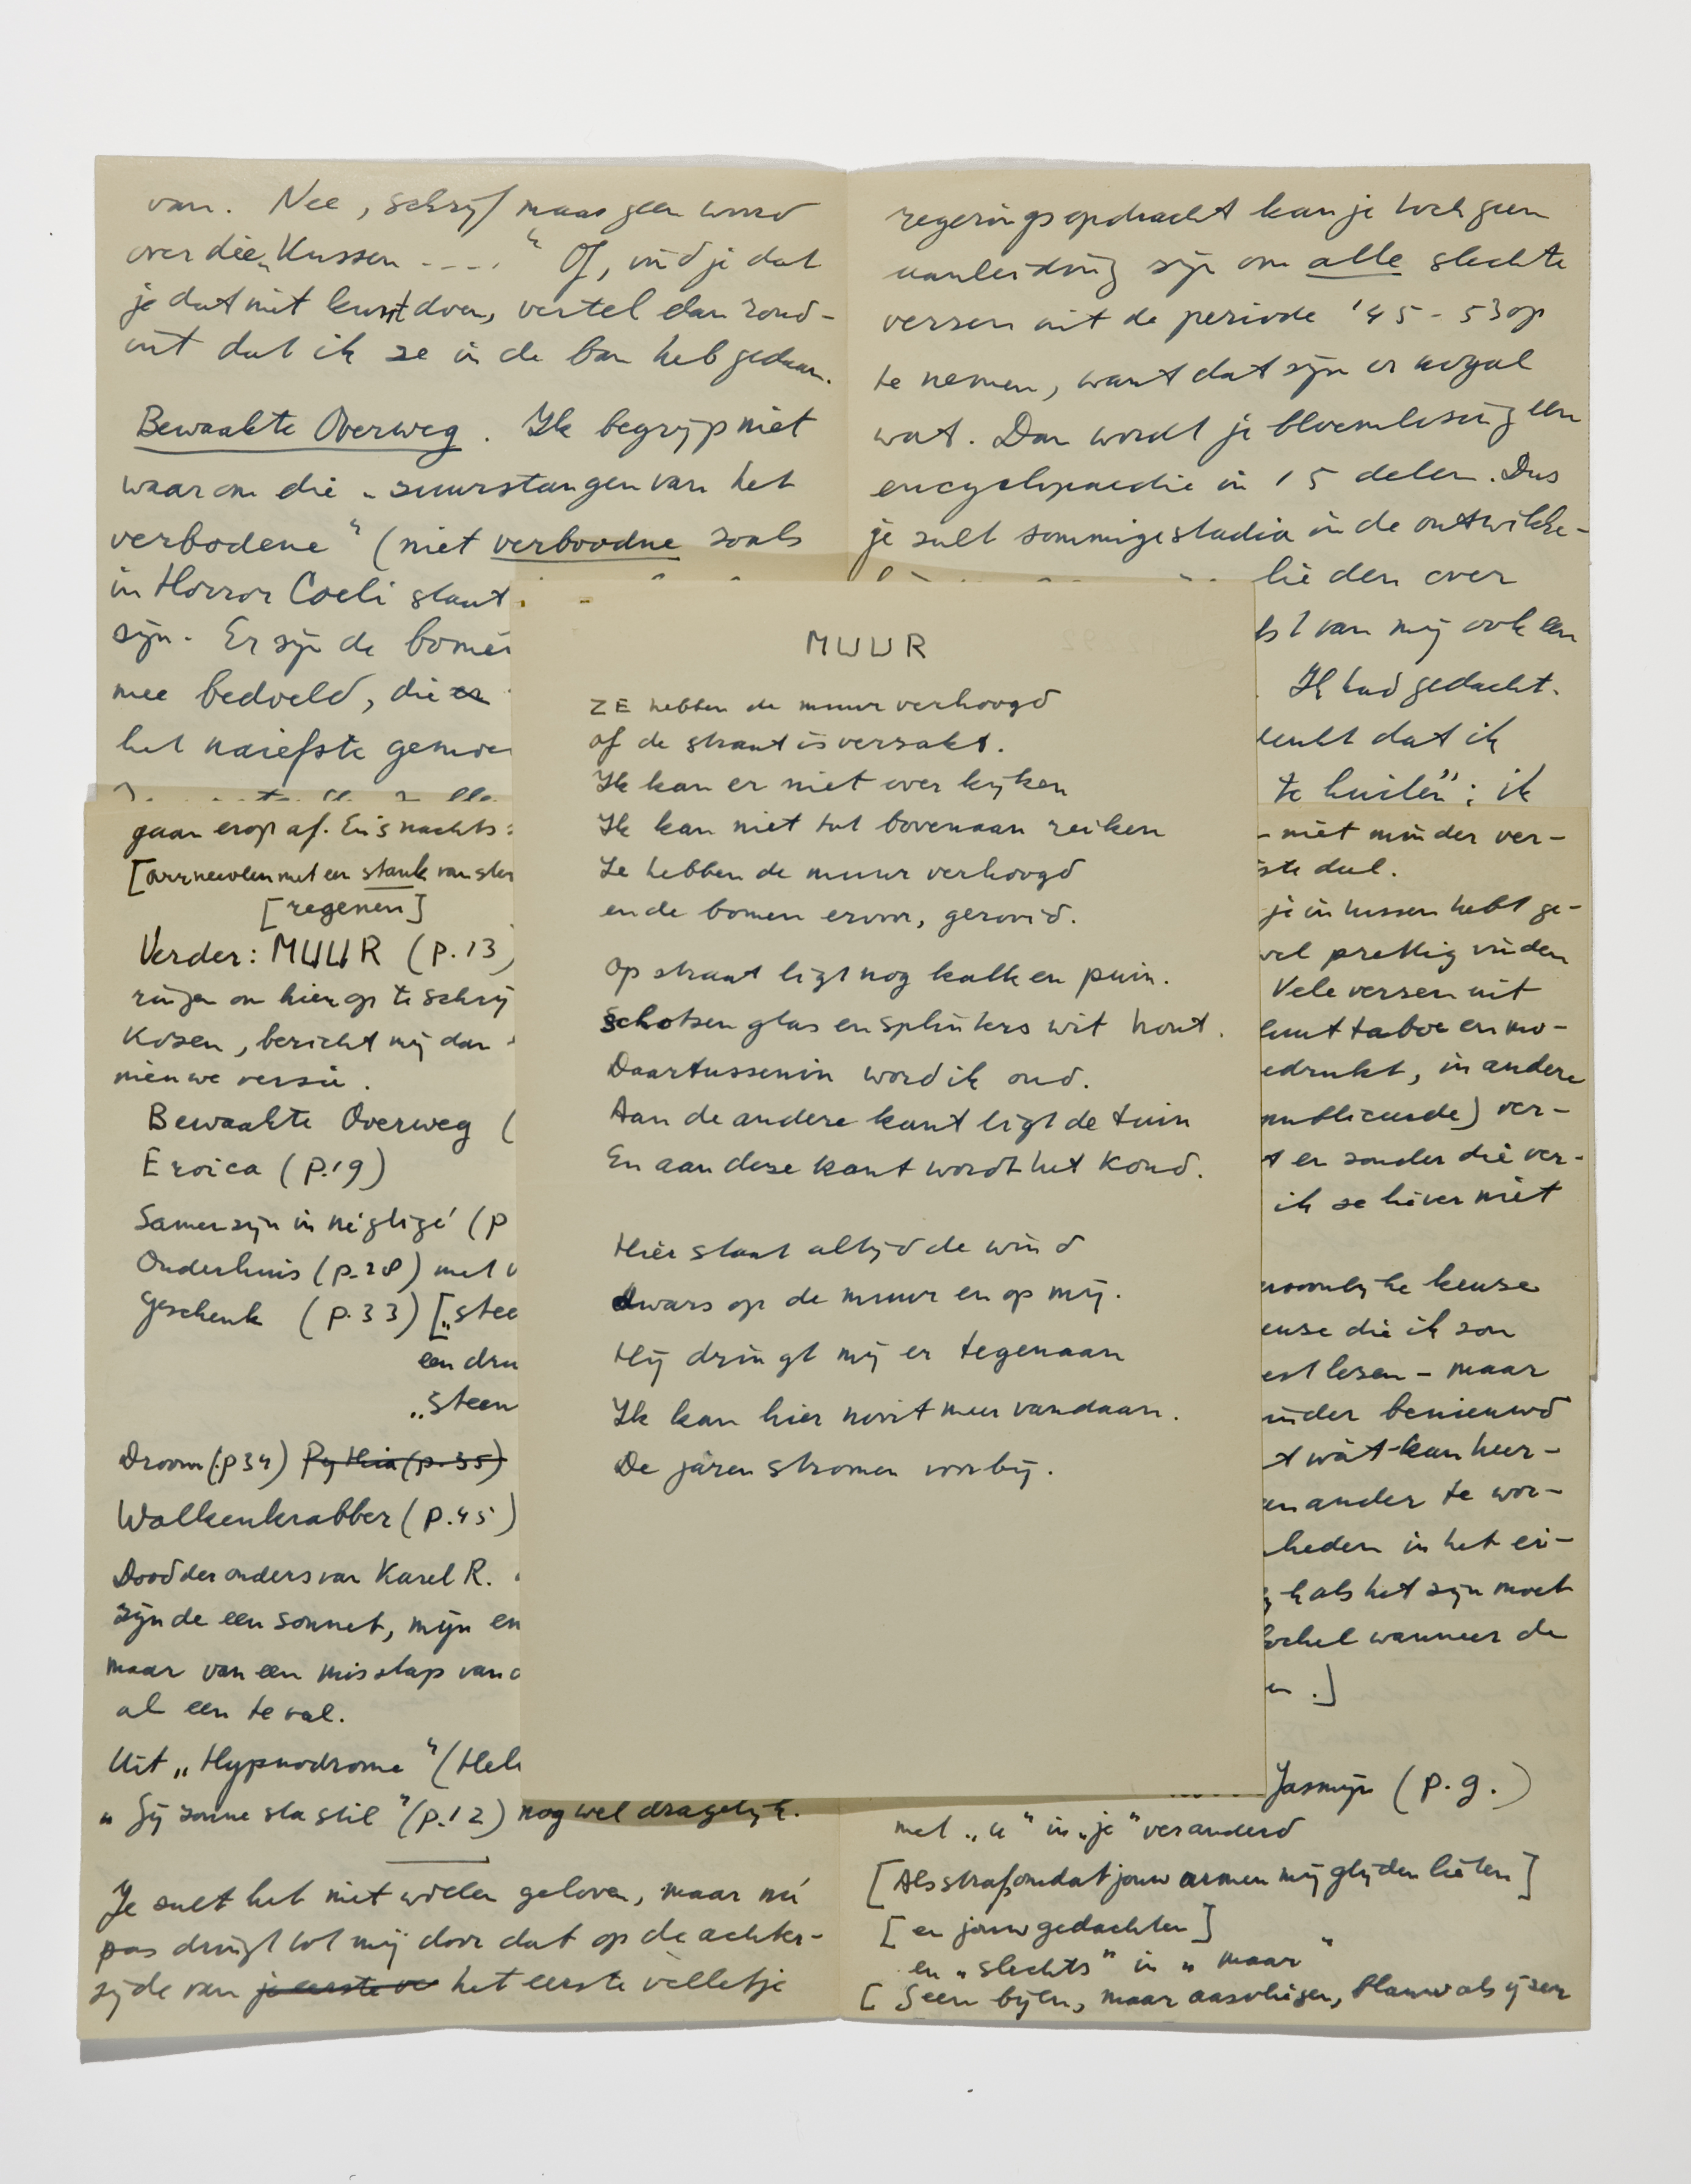 van. Nee, schrijf maar geen woord
over die „Kussen ----." Of, vind je dat
je dat niet kunt doen, vertel dan rond-
uit dat ik ze in de ban heb gedaan.
Bewaakte Overweg. Ik begrijp niet
waarom die „zuurstangen van het
verbodene" (niet verboodne zoals
in Horror Coeli staat
zijn. Er zijn de bomen
mee bedoeld, die er
het naiefste
gaan erop af. En 's nachts
[arrneeolen met een stank van
[regenen]
Verder: MUUR (p.13)
ringen om hier op te schrij
Kozen, bericht mij dan
nieuwe versie.
Bewaakte Overweg (
Eroica (p.19)
Samenzijn in négligé (p
Onderhuis (p.28) met
Geschenk (p.33) [„stee
een dru
„steen
Droom (p34) Pythia (p.35)
Wolkenkrabber (p.45)
Dood der ouders van Karel R.
zijnde een sonnet, mijn en
maar van een misstap van
al een te veel.
Uit „Hypnodrome" (Hel
„Gij zonne sta stil" (p.12) nog wel dragelijk.
Je zult het niet willen geloven, maar nú
pas dringt tot mij door dat op de achter-
zijde van je eerste ve het eerste velletje
MUUR
ZE hebben de muur verhoogd
of de straat is verzakt.
Ik kan er niet over kijken
Ik kan niet tot bovenaan reiken
Ze hebben de muur verhoogd
en de bomen ervoor, gerooid.
Op straat ligt nog kalk en puin.
Schotsen glas en splinters wit hout.
Daartussenin word ik oud.
Aan de andere kant ligt de tuin
En aan deze kant wordt het koud.
Hier staat altijd de wind
dwars op de muur en op mij.
Hij dringt mij er tegenaan
Ik kan hier nooit meer vandaan.
De jaren stromen voorbij.
regeringsopdracht kan je toch geen
aanleiding zijn om alle slechte
verzen uit de periode '45-53 op
te nemen, want dat zijn er nogal
wat. Dan wordt je bloemlezing een
encyclopaedie in 15 delen. Dus
je zult sommige stadia in de ontwikke-
lieden over
bt van mij ook een
Ik had gedacht.
denkt dat ik
te huilen"; ik
- niet minder ver-
ste deel.
je in tussen hebt ge-
wel prettig vinden
Vele verzen uit
kunt taboe en mo-
edrukt, in andere
publiceerde) ver-
t er zonder die ver-
ik ze liever niet
persoonlijke keuze
euze die ik zou
est lezen - maar
inder benieuwd
t wát kan heer-
an ander te wor-
heden in het ei-
k als het zijn moet
wanneer de
en.]
Jasmijn (p.9.)
met „u" in „je" veranderd
[Als straf, omdat jouw armen mij glijden lieten]
[en jouw gedachten]
en „slechts" in „maar"
[Geen bijen, maar aasvliegen, blauw als ijzer